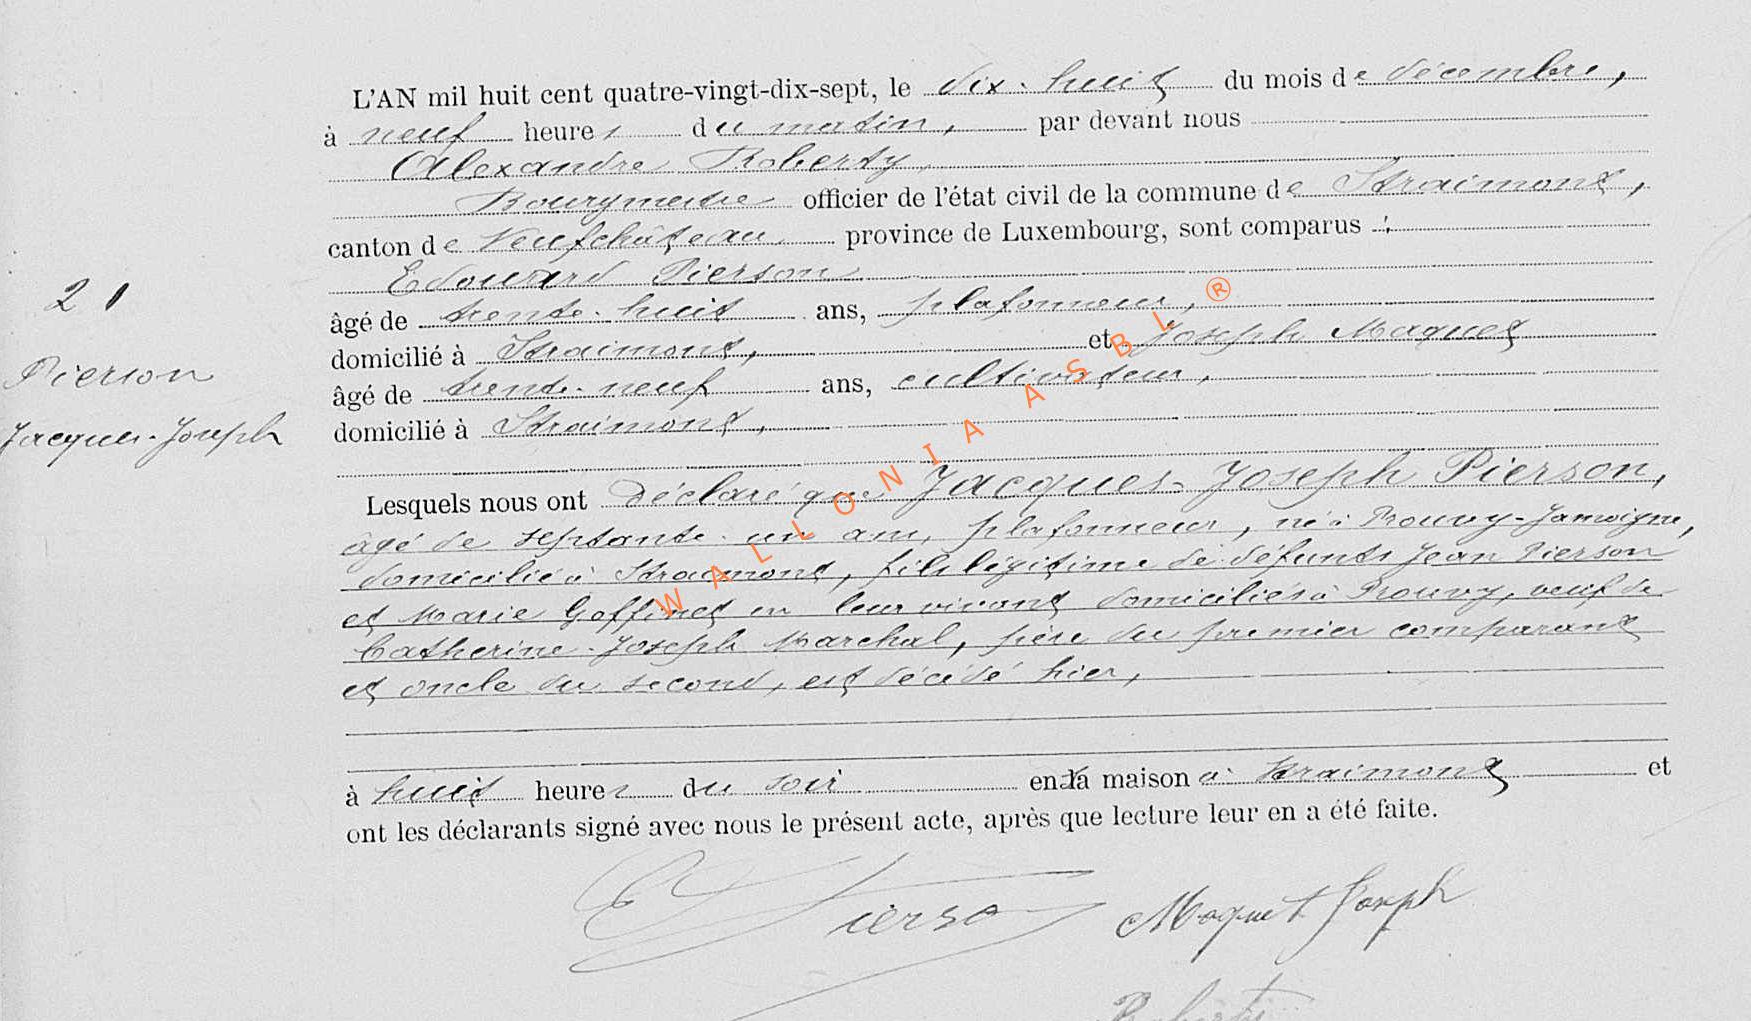 L'AN mil huit cent quatre-vingt-dix-sept, le dix-huit du mois de décembre,
à neuf heures du matin, par devant nous
Alexandre Roberty,
Bourgmestre officier de l'état civil de la commune de Straimont,
canton de Neufchâteau, province de Luxembourg, sont comparus :
Edouard Pierson
21
âgé de trente-huit ans, plafonneur,
domicilié à Straimont, et Joseph Maquet
Pierson
âgé de trente-neuf ans, cultivateur,
Jacques-Joseph
domicilié à Straimont,
Lesquels nous ont déclaré que Jacques-Joseph Pierson,
âgé de septante-un ans, plafonneur, né à Prouvy-Jamoigne,
domicilié à Straimont, fils légitime de défunts Jean Pierson
et Marie Goffinet en leur vivant domiciliés à Prouvy, veuf de
Catherine-Joseph Marchal, père du premier comparant
et oncle du second, est décédé hier,
à huit heures du soir en la maison à Straimont et
ont les déclarants signé avec nous le présent acte, après que lecture leur en a été faite.
E Pierson Maquet Joseph
Roberty
WALLONIA ASBL ®